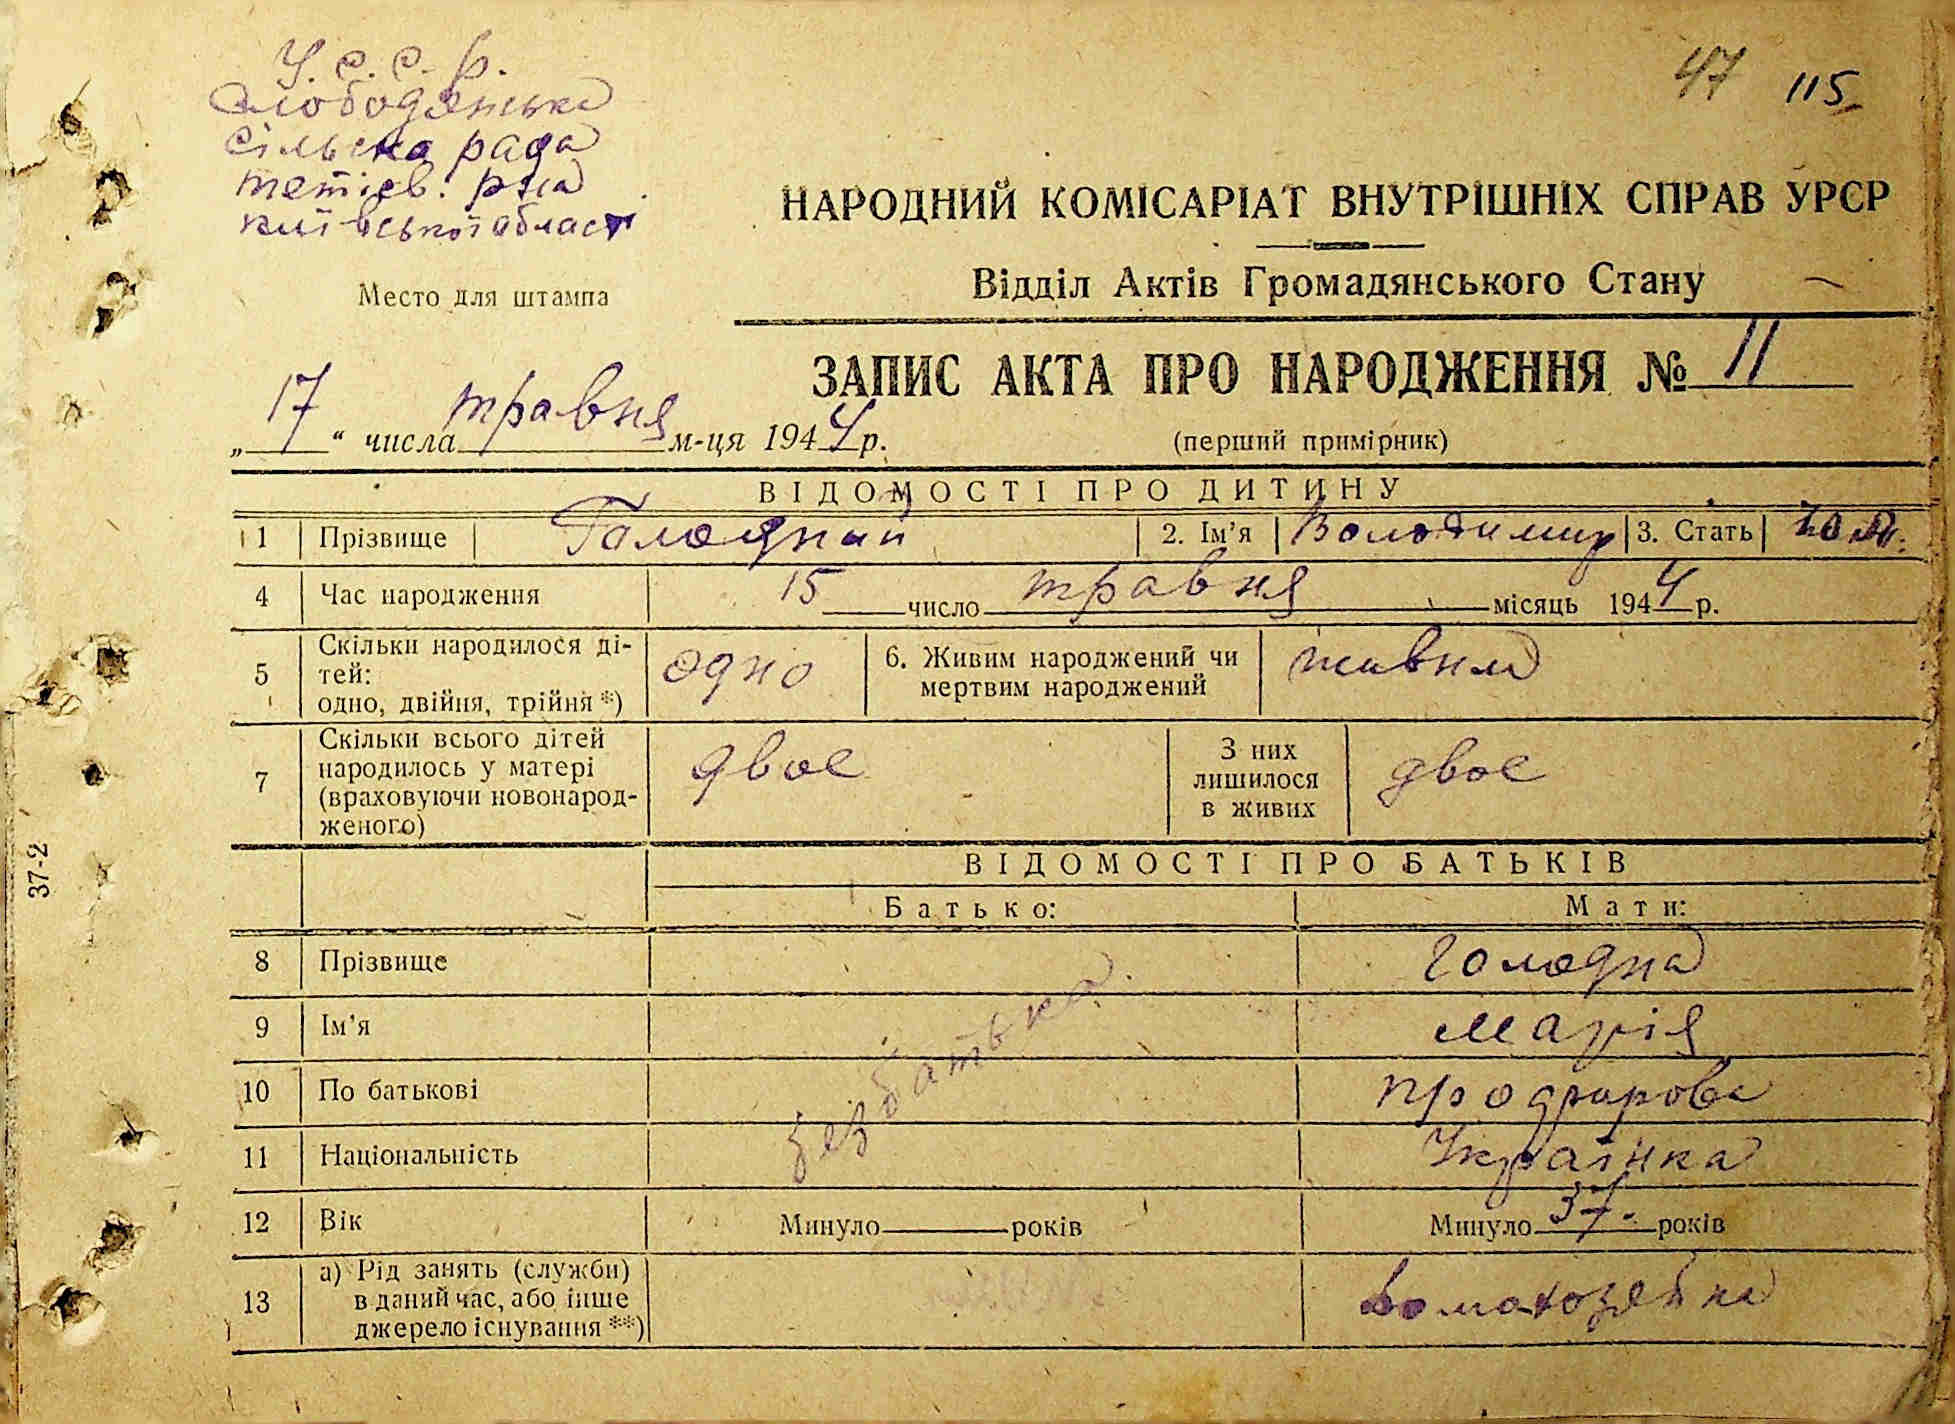 У. С. С. Р.
Слободянська
сільська рада
Тетіїв. р-на
Київської област
47 115
НАРОДНИЙ КОМІСАРІАТ ВНУТРІШНІХ СПРАВ УРСР
Відділ Актів Громадянського Стану
Место для штампа
ЗАПИС АКТА ПРО НАРОДЖЕННЯ № 11
„17“ числа травня м-ця 1944 р.
(перший примірник)
ВІДОМОСТІ ПРО ДИТИНУ
1 Прізвище Голодний 2. Ім’я Володимир 3. Стать
4 Час народження 15 число травня місяць 1944 р.
5 Скільки народилося ді-
тей:
одно, двійня, трійня *) одно 6. Живим народжений чи
мертвим народжений живим
7 Скільки всього дітей
народилось у матері
(враховуючи новонарод-
женого) двоє З них
лишилося
в живих двоє
37-2
ВІДОМОСТІ ПРО БАТЬКІВ
Батько: Мати:
8 Прізвище Голодна
9 Ім’я Марія
без батька
10 По батькові
11 Національність Українка
12 Вік Минуло років Минуло 37 років
13 а) Рід занять (служби)
в даний час, або інше
джерело існування **) Домохозяйка